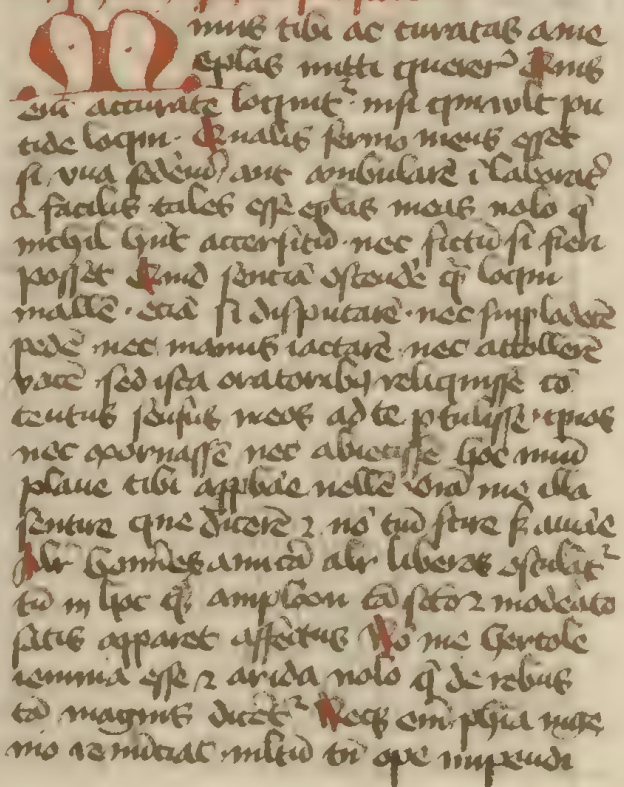 Minus tibi accuratas a me
eplas mitti quereris Quis
eni accurate loquit nisi qui vult pu
tide loqui Qualis sermo meus esset
si una sederem aut ambularem
facilis tales esse eplas meas nolo q
nichil hnt accersitu nec fictu si fieri
posset Quid sentia ostende q loqui
malle etia si disputare nec supplodere
pede nec manus iactare nec attollere
voce sed ista oratoribus reliquisse co
tentus sensus meos ad te ptulisse quos
nec exornasse nec abiecisse hoc unu
plane tibi approbare velle oia me illa
sentire que dicere
hoies amica liberos osculat
tn in hoc q amplexu ta scto et moderato
satis apparet affectus No me hercole
ieiuna esse et arida volo q de rebus
ta magnis dicet Neq eni phia inge
nio renuciat multu tn ope impendi